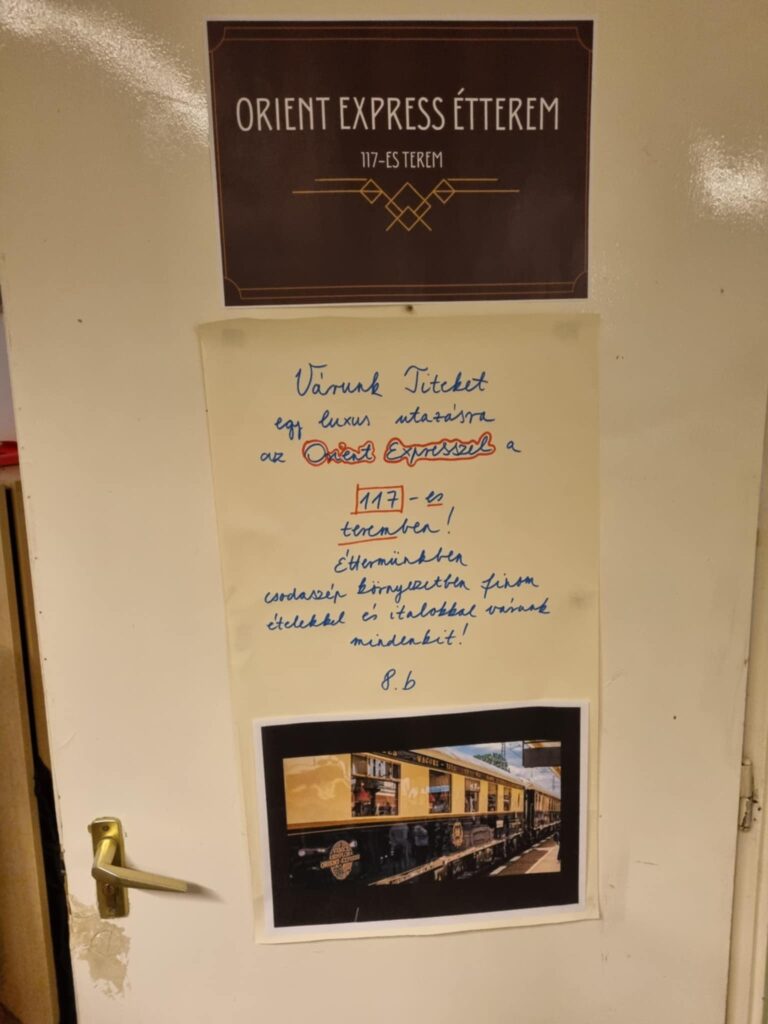 ORIENT EXPRESS ÉTTEREM
117-ES TEREM
Várunk Titeket
egy luxus utazásra
az Orient Expresszel a
117-es
teremben!
Éttermünkben
csodaszép környezetben finom
ételekkel és italokkal várunk
mindenkit!
8.b
ORIENT EXPRESS